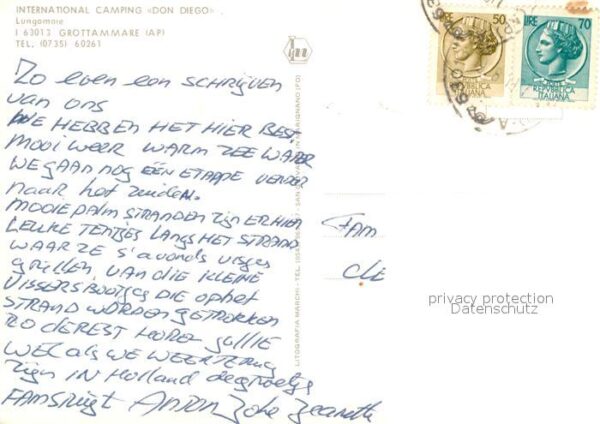 INTERNATIONAL CAMPING «DON DIEGO»
Lungomare
I 63013 GROTTAMMARE (AP)
TEL. (0735) 60261
Zo even een SCHRIJVEN
van ons
WE HEBBEN HET HIER BEST
Mooi weer WARM ZEE WATER
WE GAAN NOG ÉÉN ETAPPE VERDER
naar het zuiden.
MOOIE PALM STRANDEN ZIJN ER HIER
LEUKE TENTJES LANGS HET STRAND
WAAR ZE S'avonds visjes
grillen VAN DIE KLEINE
VISSERSBOOTJES DIE OPHET
STRAND WORDEN GETROKKEN
ZO DEREST HOREN JULLIE
WEL ALS WE WEER TERUG
Zijn IN HOLLAND de groetjes
FAM Anton Joke Jeanette
LITOGRAFIA MARCHI - TEL.
50 LIRE
REPVBBLICA
ITALIANA
LIRE 70
REPVBBLICA
ITALIANA
FAM
CLE
privacy protection
Datenschutz